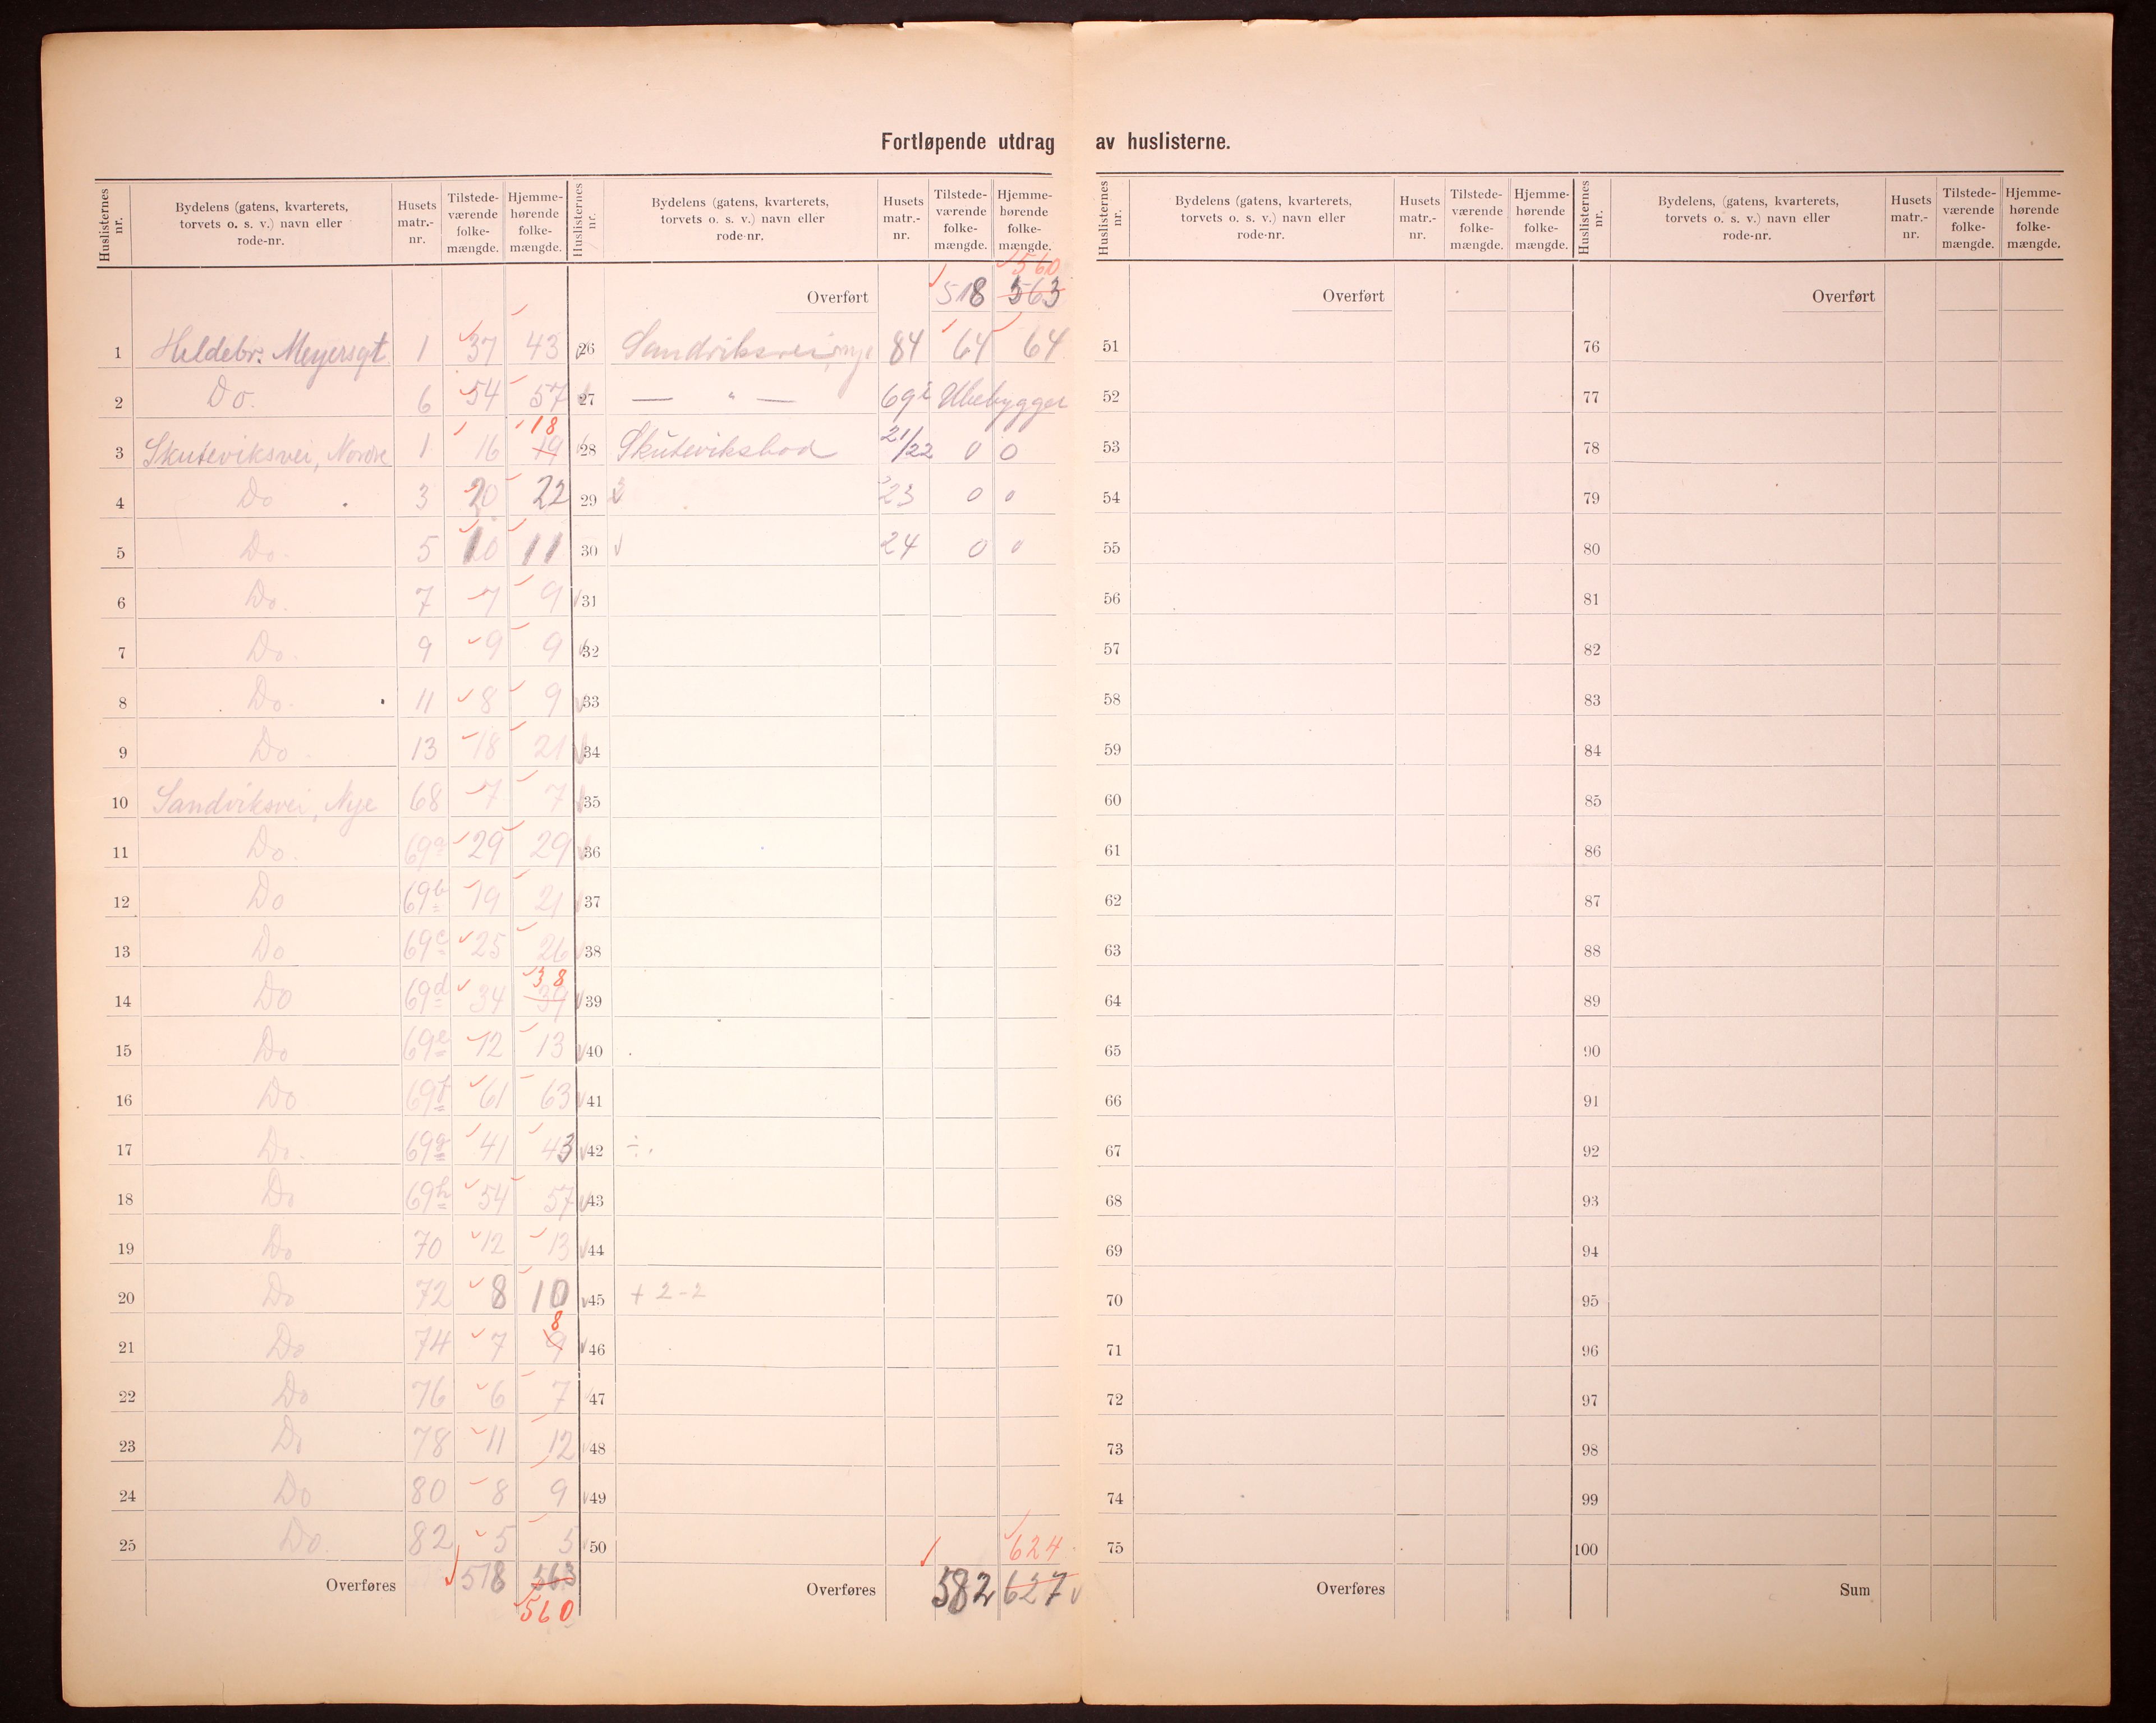 Fortløpende utdrag av huslisterne.
Huslisternes nr. Bydelens (gatens, kvarterets, torvets o. s. v.) navn eller rode-nr. Husets matr.-nr. Tilstede-værende folke-mængde. Hjemme-hørende folke-mængde.
1 Hildebr. Meyersgt. 1 37 43
2 Do. 6 54 57
3 Skuteviksvei, Nordre 1 16 19 18
4 Do 3 20 22
5 Do. 5 10 11
6 Do. 7 7 9
7 Do. 9 9 9
8 Do. 11 8 9
9 Do 13 18 21
10 Sandviksvei, Nye 68 7 7
11 Do. 69a 29 29
12 Do 69b 19 21
13 Do 69c 25 26
14 Do 69d 34 39 38
15 Do 69e 12 13
16 Do 69f 61 63
17 Do. 69g 41 43
18 Do 69h 54 57
19 Do 70 12 13
20 Do 72 8 10
21 Do 74 7 9 8
22 Do 76 6 7
23 Do 78 11 12
24 Do 80 8 9
25 Do. 82 5 5
Overføres 518 563
560
Huslisternes nr. Bydelens (gatens, kvarterets, torvets o. s. v.) navn eller rode-nr. Husets matr.-nr. Tilstede-værende folke-mængde. Hjemme-hørende folke-mængde.
560
Overført 518 563
26 Sandviksvei, nye 84 64 64
27 — " — 69i Ubebygget
28 Skutevikbod 21/22 0 0
29 23 0 0
30 24 0 0
31
32
33
34
35
36
37
38
39
40
41
42 ÷.
43
44
45 + 2 - 2
46
47
48
49
50 624
Overføres 582 627
Huslisternes nr. Bydelens (gatens, kvarterets, torvets o. s. v.) navn eller rode-nr. Husets matr.-nr. Tilstede-værende folke-mængde. Hjemme-hørende folke-mængde.
Overført
51
52
53
54
55
56
57
58
59
60
61
62
63
64
65
66
67
68
69
70
71
72
73
74
75
Overføres
Huslisternes nr. Bydelens, (gatens, kvarterets, torvets o. s. v.) navn eller rode-nr. Husets matr.-nr. Tilstede-værende folke-mængde. Hjemme-hørende folke-mængde.
Overført
76
77
78
79
80
81
82
83
84
85
86
87
88
89
90
91
92
93
94
95
96
97
98
99
100
Sum